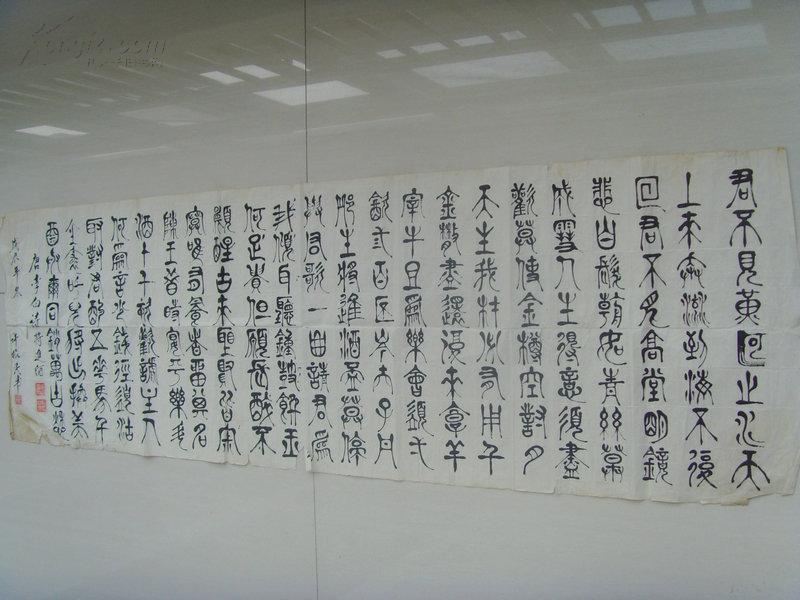 君不見黃河之水天
上來奔流到海不復
回君不見高堂明鏡
悲白髮朝如青絲暮
成雪人生得意須盡
歡莫使金樽空對月
天生我材必有用千
金散盡還復來烹羊
宰牛且爲樂會須弌
飲弎百杯岑夫子丹
邱生將進酒杯莫停
與君歌一曲請君爲
我傾耳聽鐘鼓饌玉
何足貴但願長醉不
願醒古來聖賢皆寂
寞唯有飲者留其名
陳王昔時宴平樂斗
酒十千恣歡謔主人
何爲言少錢徑須沽
取對君酌五花馬千
金裘呼兒將出換美
酒與爾同銷萬古愁
唐李白詩將進酒
戊辰年冬